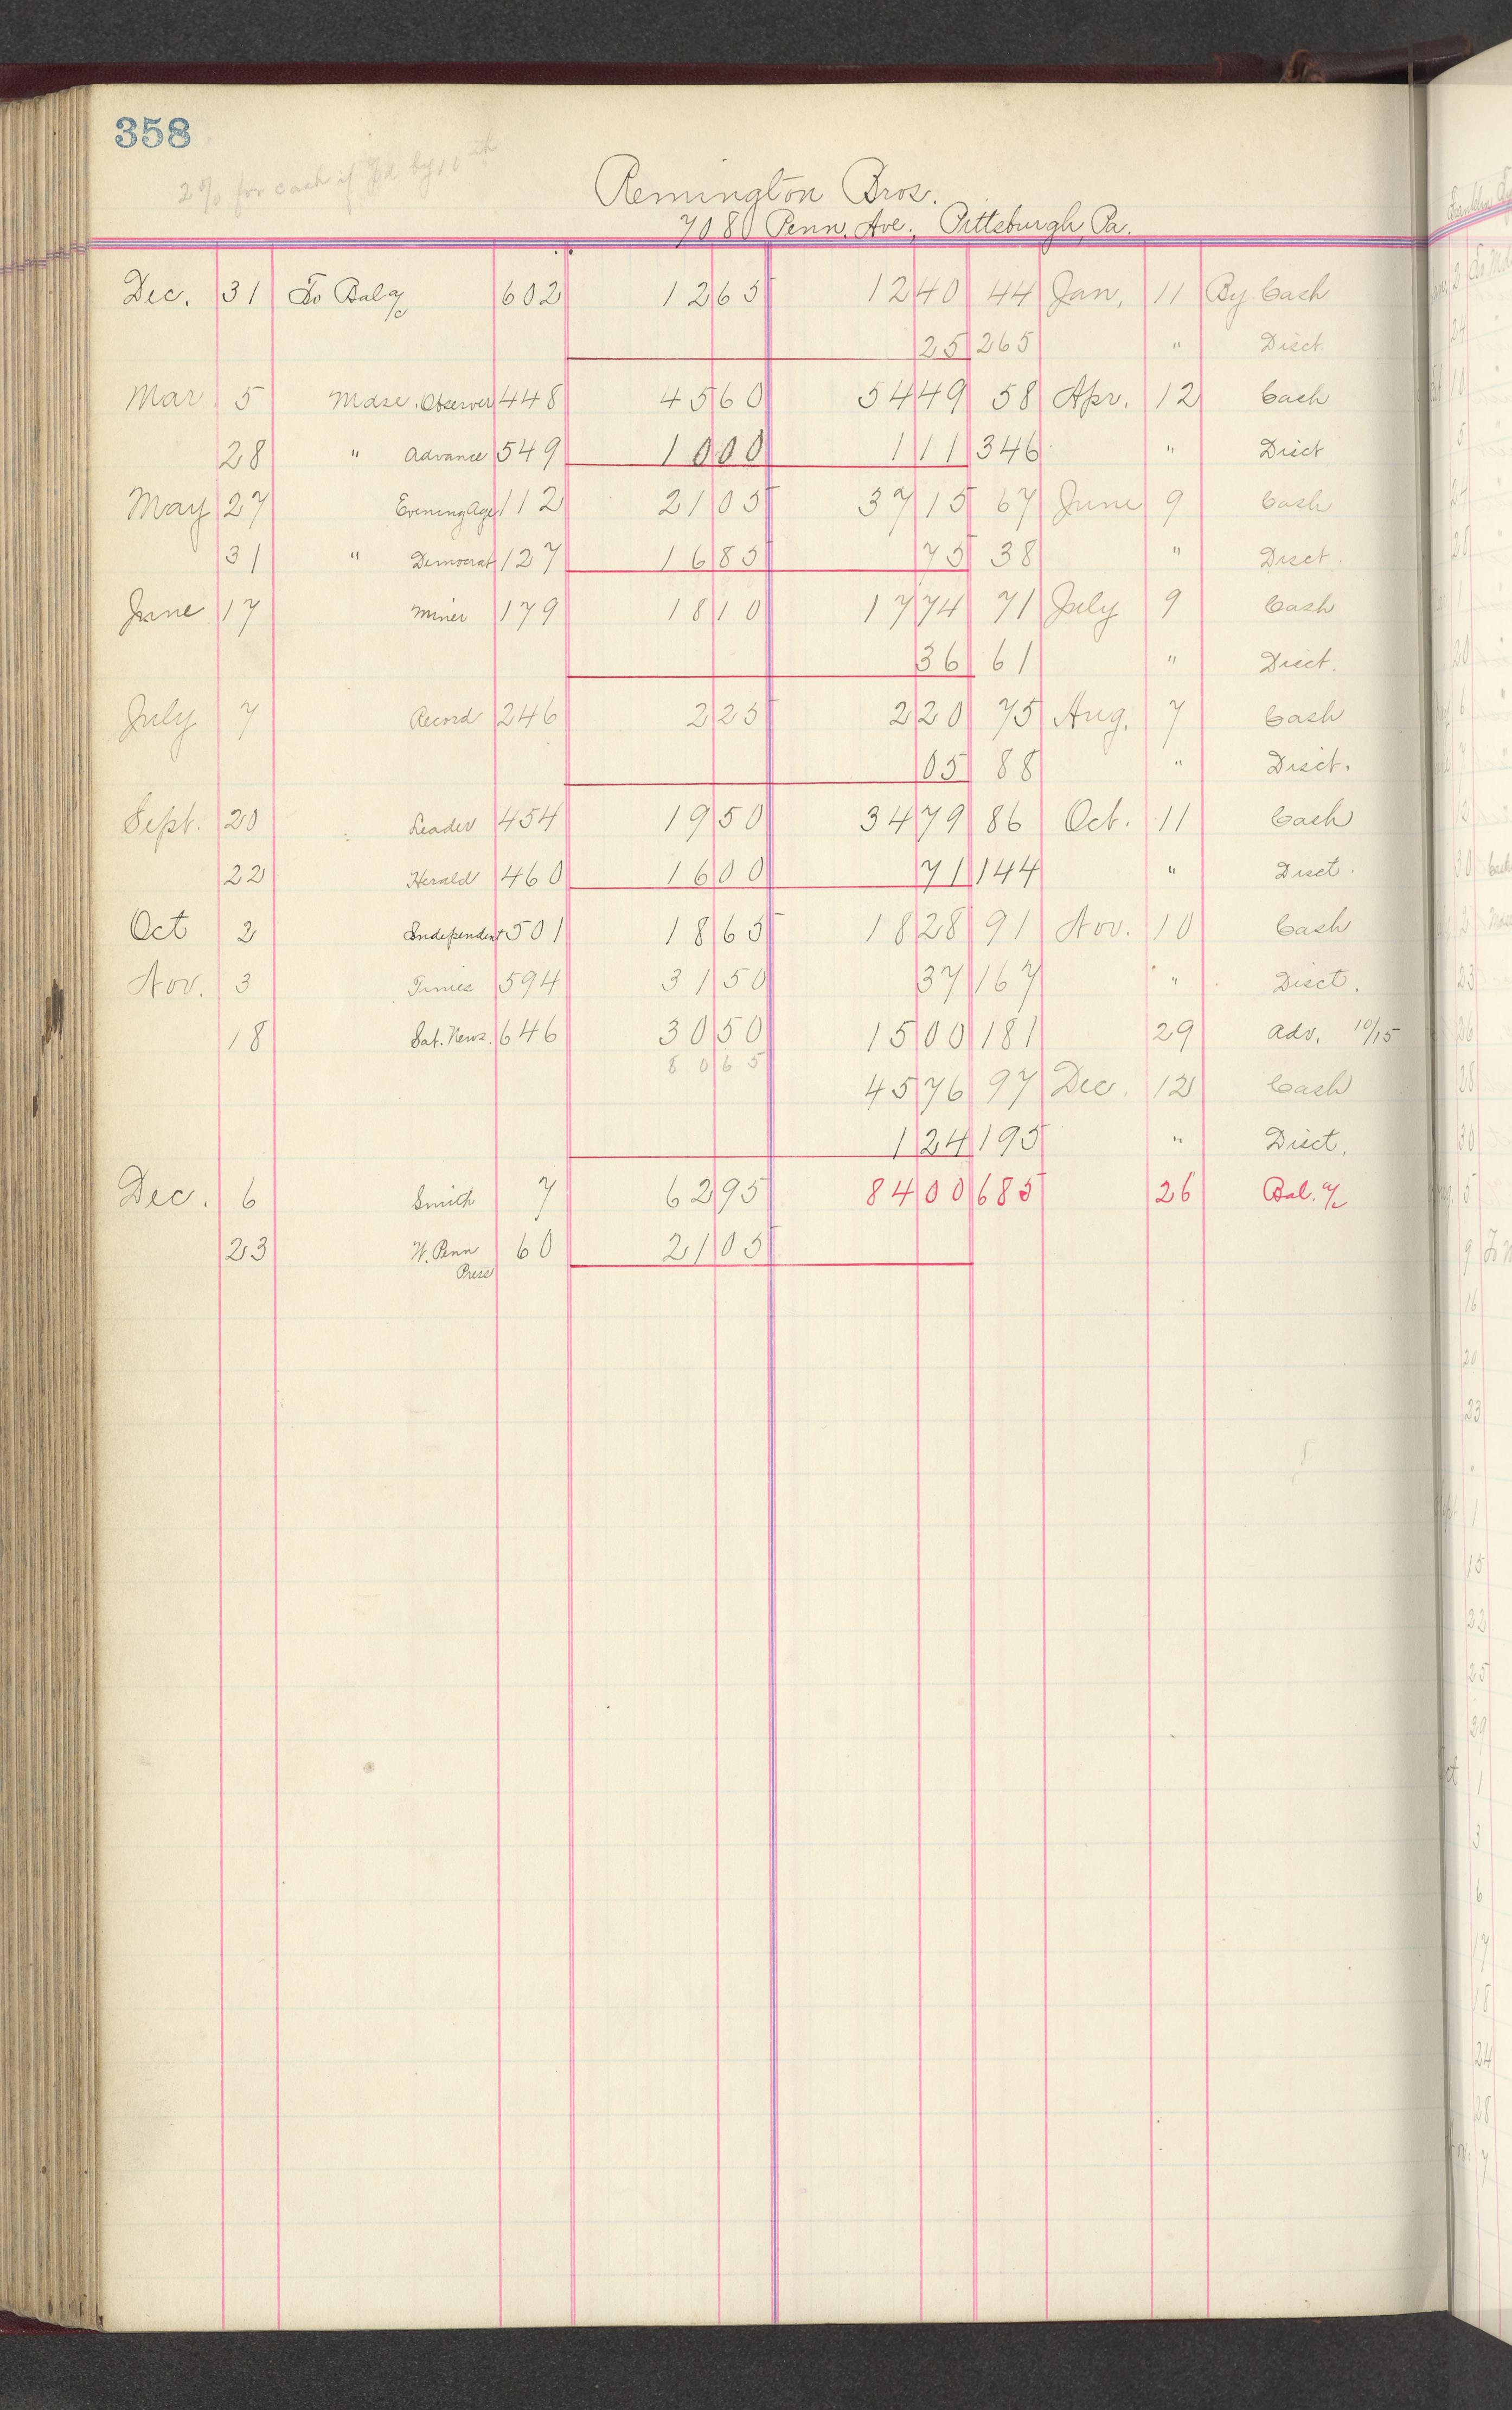 358
2% for cash if pd by 10th
Remington Bros.
7080 Penn. Ave. Pittsburgh, Pa.
Dec. 31 To Bal a/c 602 1265 1240 44 Jan. 11 By Cash
25 265 " Disct.
Mar 5 Mdse. Observer 448 4560 5449 58 Apr. 12 Cash
28 " Advance 549 1000 111 346 " Disct
May 27 Evening Age 112 2105 3715 67 June 9 Cash
31 " Democrat 127 1685 75 38 " Disct.
June 17 Miner 179 1810 1774 71 July 9 Cash
36 61 " Disct.
July 7 Record 246 225 220 75 Aug. 7 Cash
05 88 " Disct.
Sept. 20 Leader 454 1950 3479 86 Oct. 11 Cash
22 Herald 460 1600 71 144 " Disct.
Oct 2 Independent 501 1865 1828 91 Nov. 10 Cash
Nov. 3 Times 594 3150 37 167 " Disct.
18 Sat. News. 646 3050 1500 181 29 Adv. 10/15
8065
4576 97 Dec. 12 Cash
124 195 " Disct.
Dec. 6 Smith 7 6295 8400 685 26 Bal. a/c
23 W. Penn 60 2105
Press